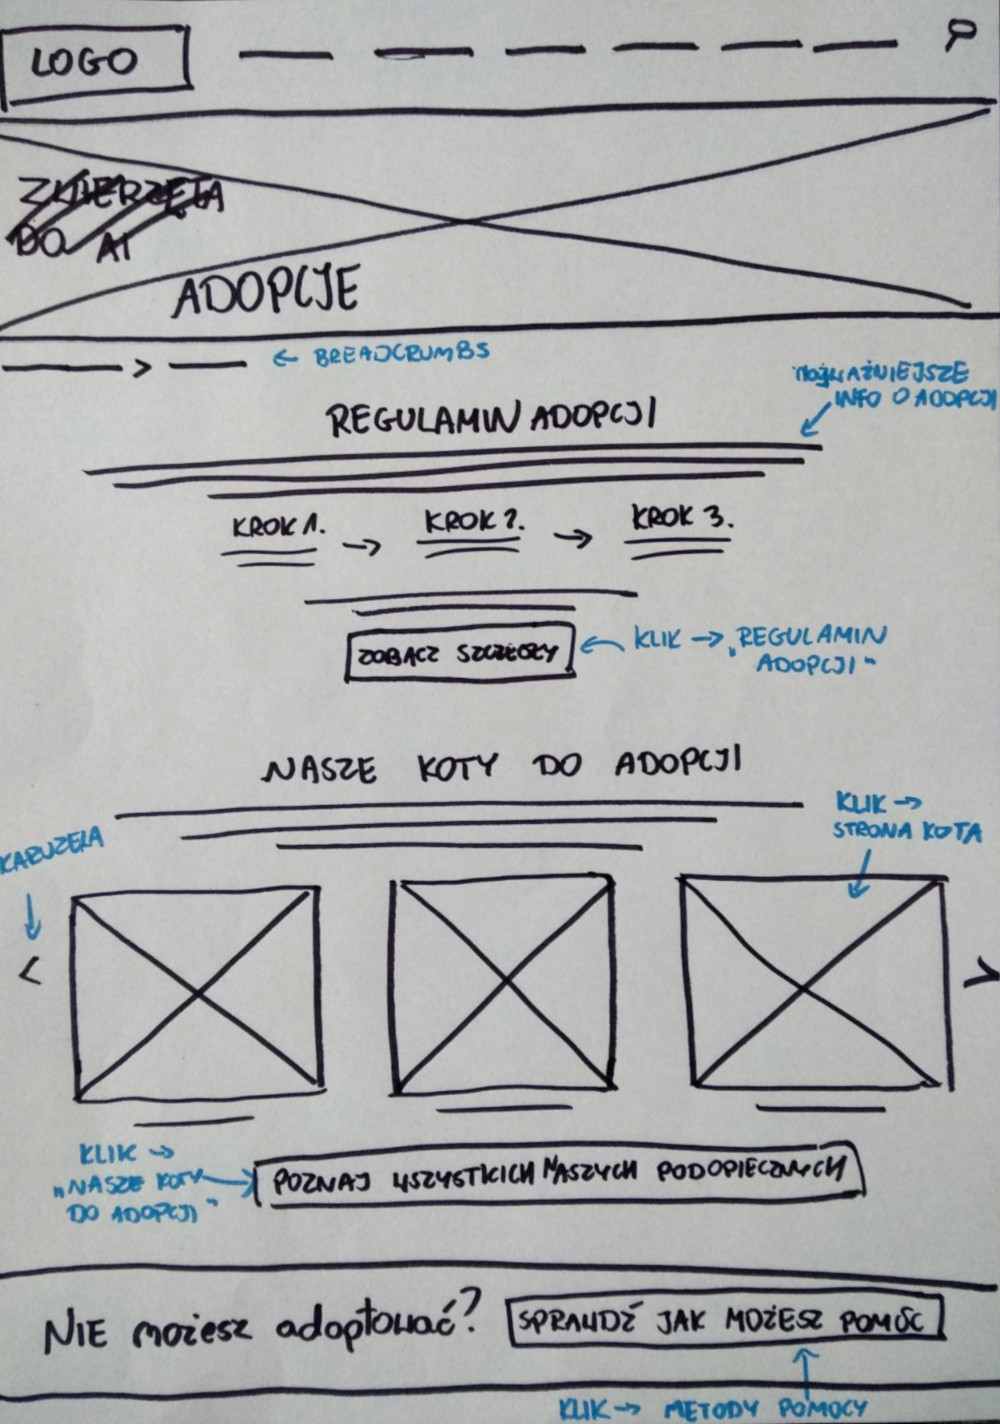 LOGO
ZWIERZĘTA
DO A
ADOPCJE
← BREADCRUMBS
NAJWAŻNIEJSZE
INFO O ADOPCJI
REGULAMIN ADOPCJI
KROK 1. → KROK 2. → KROK 3.
ZOBACZ SZCZEGÓŁY
KLIK → „REGULAMIN
ADOPCJI"
NASZE KOTY DO ADOPCJI
KLIK →
STRONA KOTA
KARUZELA
< >
KLIK →
„NASZE KOTY
DO ADOPCJI"
POZNAJ WSZYSTKICH NASZYCH PODOPIECZNYCH
NIE możesz adoptować?
SPRAWDŹ JAK MOŻESZ POMÓC
KLIK → METODY POMOCY